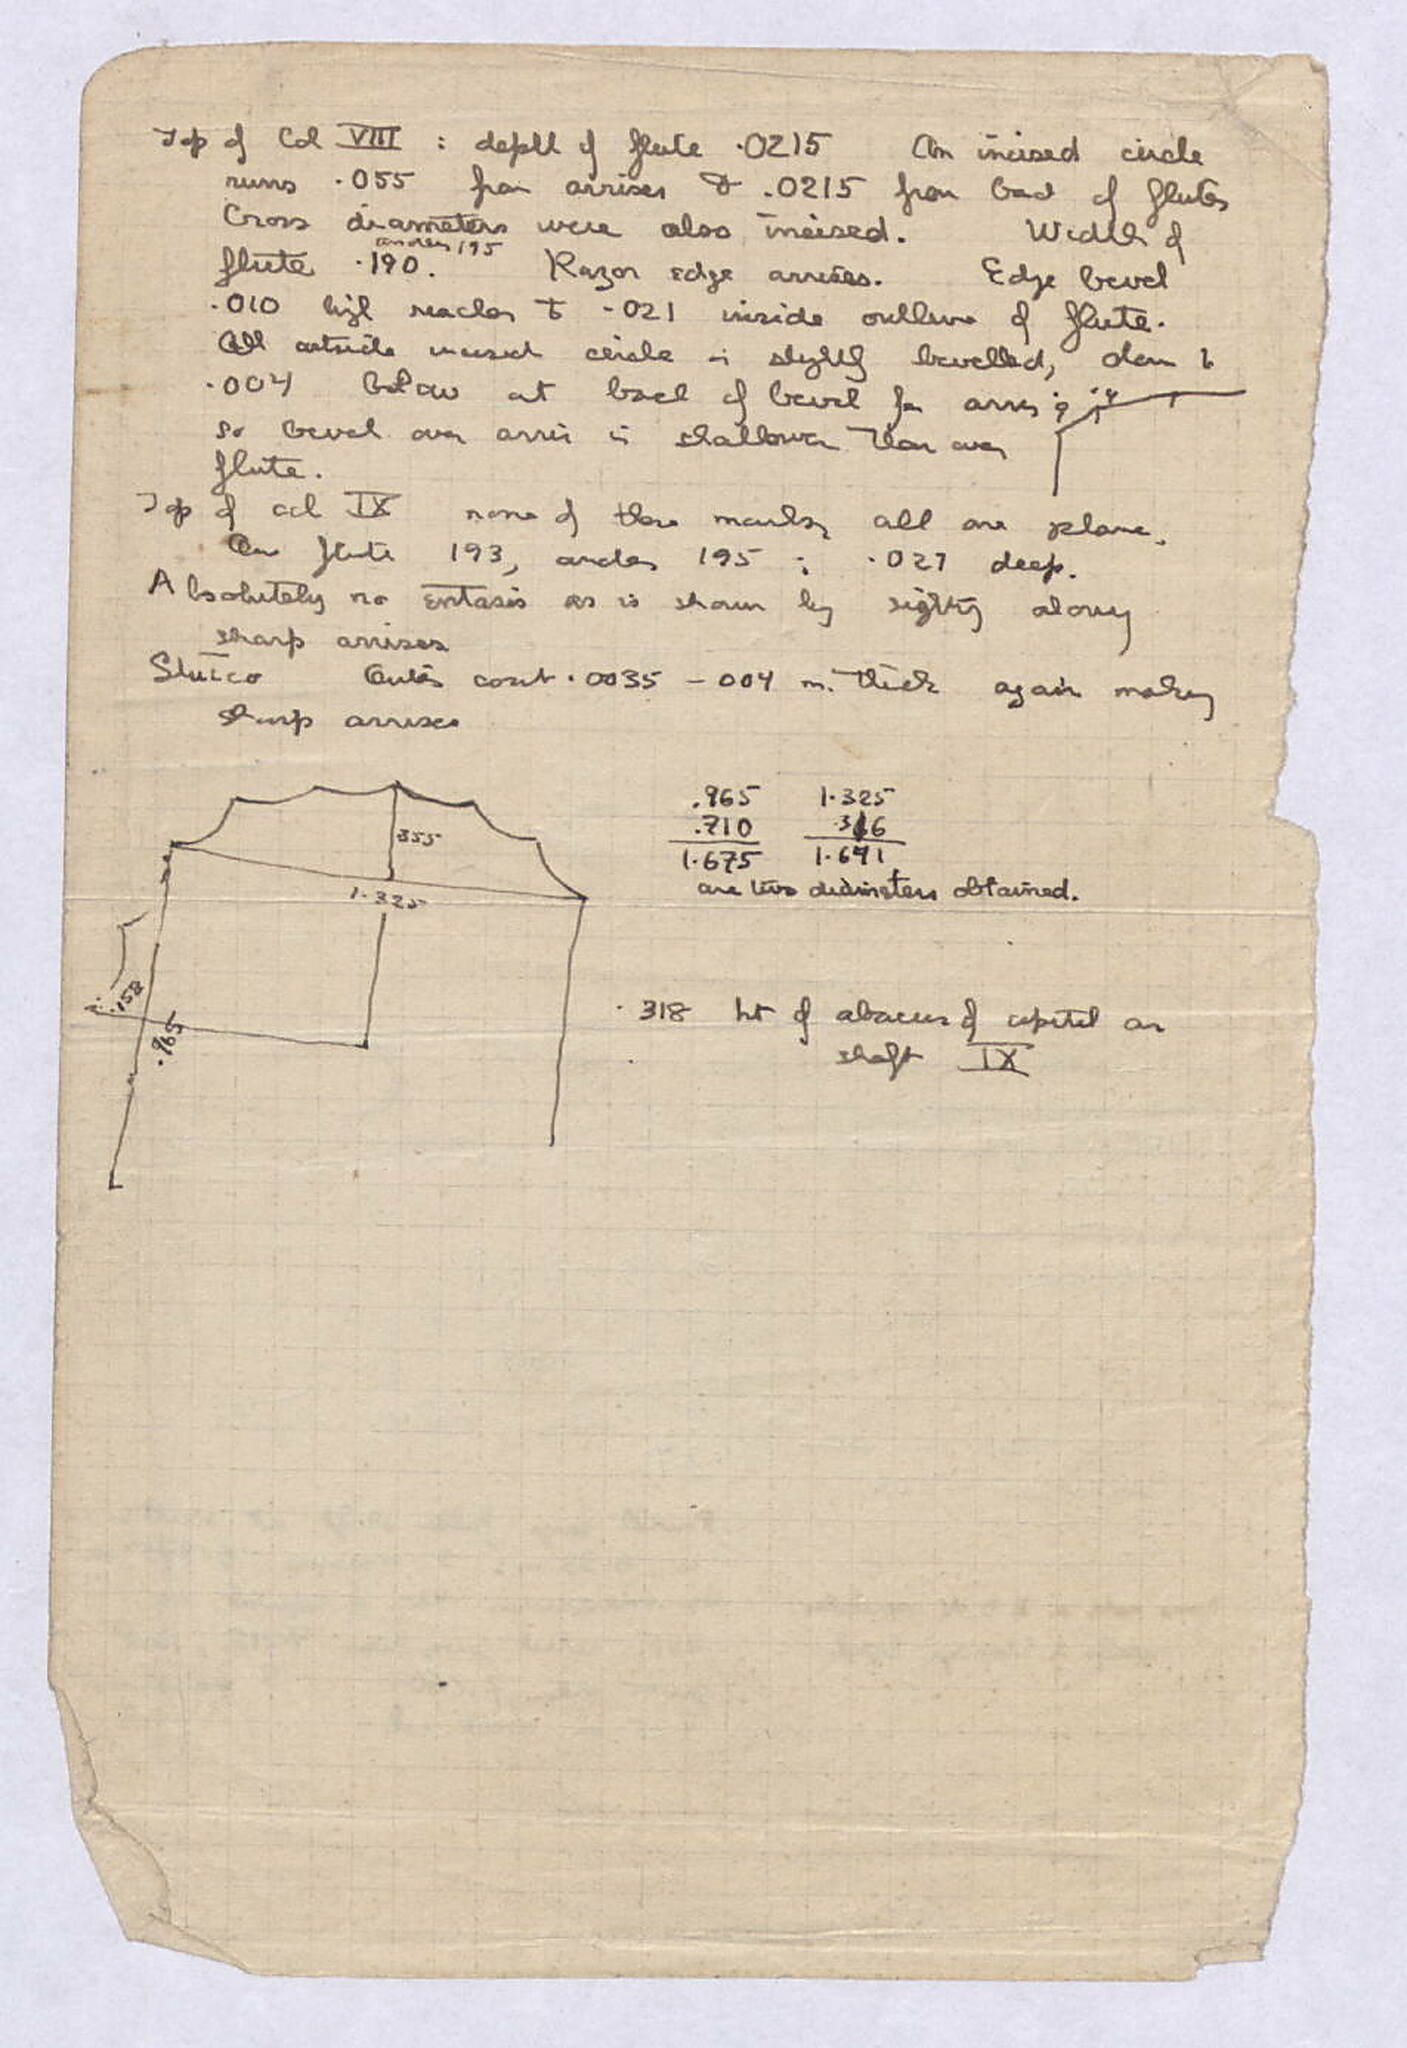 Top of Col VIII : depth of flute .0215 An incised circle
runs .055 from arrises & .0215 from back of flutes
Cross diameters were also incised. Width of
another 195
flute .190. Razor edge arrises. Edge bevel
.010 high reaches to .021 inside outline of flute.
All outside incised circle is slightly bevelled, down to
.004 below at back of bevel for arris
so bevel over arris is shallower than over
flute.
Top of col IX none of these marks, all are plane.
One flute 193, another 195 ; .027 deep.
Absolutely no entasis as is shown by sighting along
sharp arrises
Stucco Outer coat .0035 - 004 m. thick again making
sharp arrises
.965 1.325
.710 .316
1.675 1.641
are two diameters obtained.
.355
1.325
.158
.965
.318 ht of abacus of capital on
shaft IX